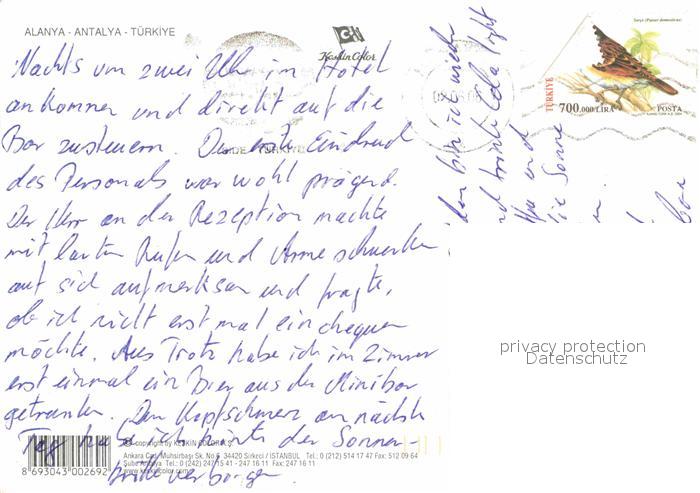 ALANYA - ANTALYA - TÜRKİYE
Keskin Color
Nachts um zwei Uhr im Hotel
ankommen und direkt auf die
Bar zusteuern. Der erste Eindruck
des Personals war wohl prägend.
Der Herr an der Rezeption machte
mit lauten Rufen und Arme schwenken
auf sich aufmerksam und fragte,
ob ich nicht erst mal einchequen
möchte. Aus Trotz habe ich im Zimmer
erst einmal ein Bier aus der Minibar
getrunken. Den Kopfschmerz am nächsten
Tag habe ich hinter der Sonnen-
brille verborgen.
copyright by KESKİN COLOR A.Ş.
Ankara Cad. Muhsirbaşı Sk. No.6 34420 Sirkeci / İSTANBUL Tel.: 0 (212) 514 17 47 Fax: 512 09 64
Şube Antalya Tel.: 0 (242) 247 15 41 - 247 16 11 Fax: 247 16 11
www.keskincolor.com
8 693043 002692
bin ich wieder
light
und
die Sonne
TÜRKİYE
700.000 LİRA
POSTA
privacy protection
Datenschutz